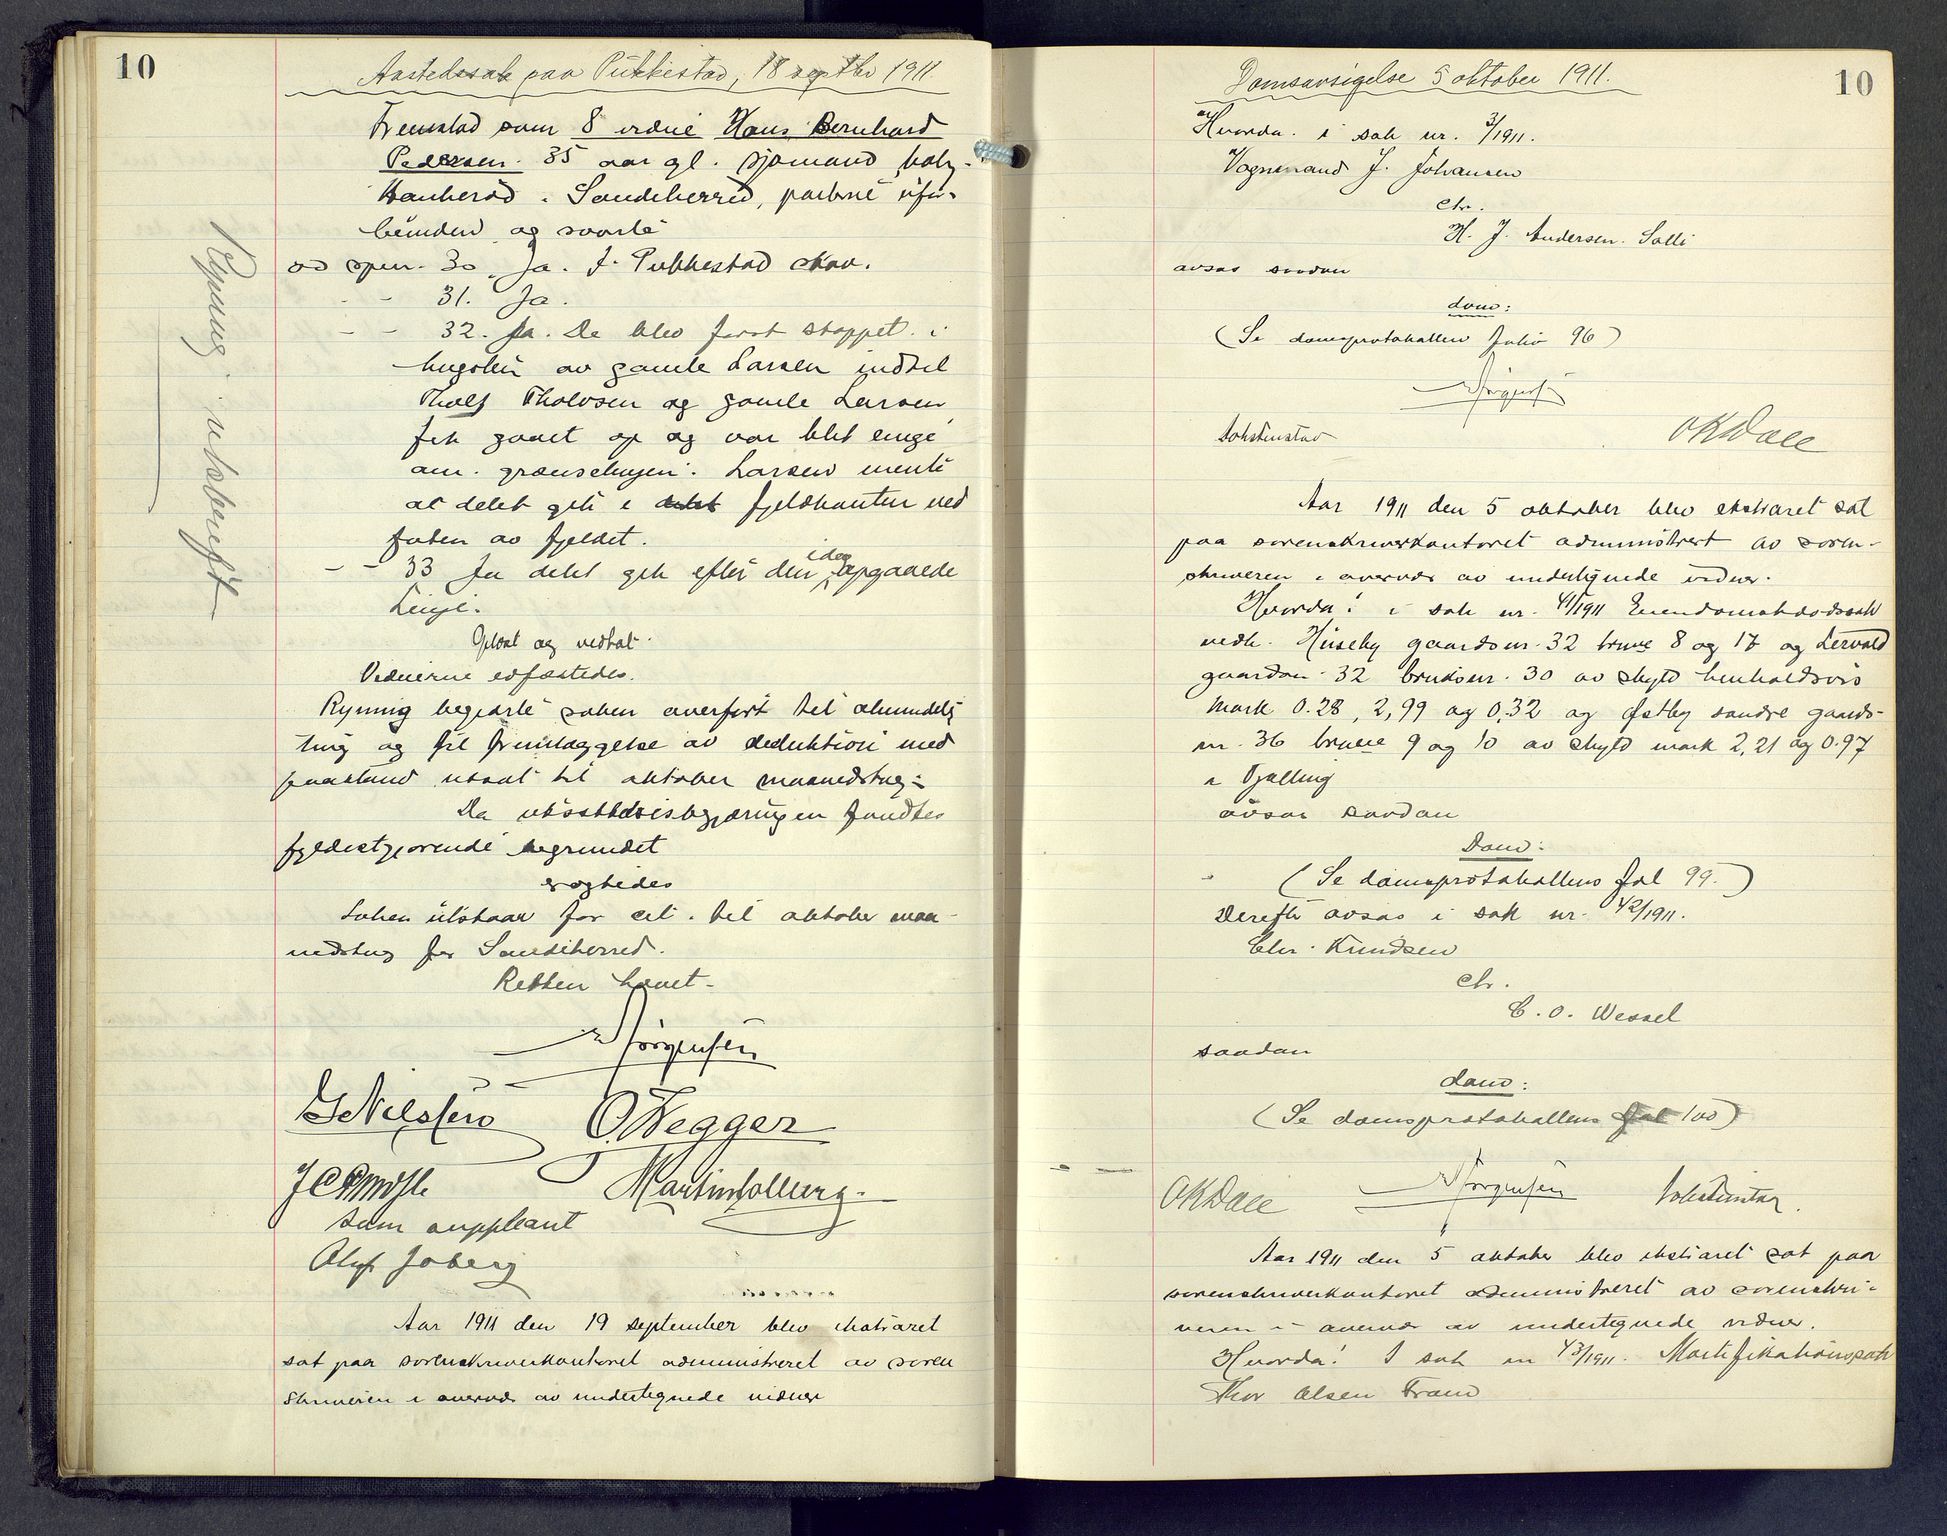 10
Aastedssak paa Pukkestad, 18 septbr 1911.
Fremstod som 8 vidne Hans Bernhard
Pedersen. 35 aar gl. sjømand, bol.
Haukerød i Sandeherred, partene ufor-
bunden og svarte
ad spm. 30. Ja. I Pukkestad skov.
- - 31. Ja.
- - 32. Ja. De blev først stoppet i
hugsten av gamle Larsen indtil
Tholf Tholvsen og gamle Larsen
fik gaaet op og var blit enige
om grænselinjen. Larsen mente
at delet gik i fjeldkanten ved
foten av fjeldet.
- - 33 Ja delet gik efter den idag opgaaede
Linje.
Oplæst og vedtat.
Vidnerne edfæstedes.
Rynning begjærte saken overført til almindelig
ting og til fremlæggelse av deduktion med
paastand utsat til oktober maanedsting.
Da utsættelsesbegjæringen fandtes
fyldestgjørende begrundet
eragtedes
Saken utstaar for at til oktober maa-
nedsting for Sandeherred.
Retten hævet-
Jørgensen
G Nilssen O. Hegger
Martin Solberg.
som suppleant
Oluf Joberg
Aar 1911 den 19 september blev ekstraret
sat paa sorenskriverkontoret administreret av soren
skriveren i overvær av undertegnede vidner
Rynning utskrift
10
Domsavsigelse 5 oktober 1911.
Hvorda. i sak nr. 3/1911.
Vognmand J. Johansen
ctr.
H. J. Andersen. Solli
avsas saadan
dom:
(Se domsprotokollen folio 96)
Jørgensen
OKDale
Aar 1911 den 5 oktober blev ekstraret sat
paa sorenskriverkontoret administrert av soren-
skriveren i overvær av undertegnede vidner.
Hvorda! i sak nr. 41/1911 Eiendomsk
vedk. Huseby gaardsnr. 32 brnre 8 og 17 og Lervold
gaardsnr. 32 bruksnr. 30 av skyld henholdsvis
mark 0.28, 2,99 og 0,32 og Østby søndre gaards-
nr. 36 brnre 9 og 10 av skyld mark 2,21 og 0.97
i Tjølling
avsas saadan
Dom:
(Se domsprotokollens fol 99.)
Derefter avsas i sak nr. 42/1911.
Chr. Knudsen
ctr.
C. O. Wessel
saadan
dom:
(Se domsprotokollens fol 100)
OKDale Jørgensen
Aar 1911 den 5 oktober blev ekstraret sat paa
sorenskriverkontoret administreret av sorenskri-
veren i overvær av undertegnede vidner.
Hvorda! I sak nr 43/1911. Mortifikationssak
Thor Olsen Fram